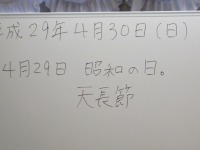 平成29年4月30日(日)
4月29日 昭和の日。
天長節